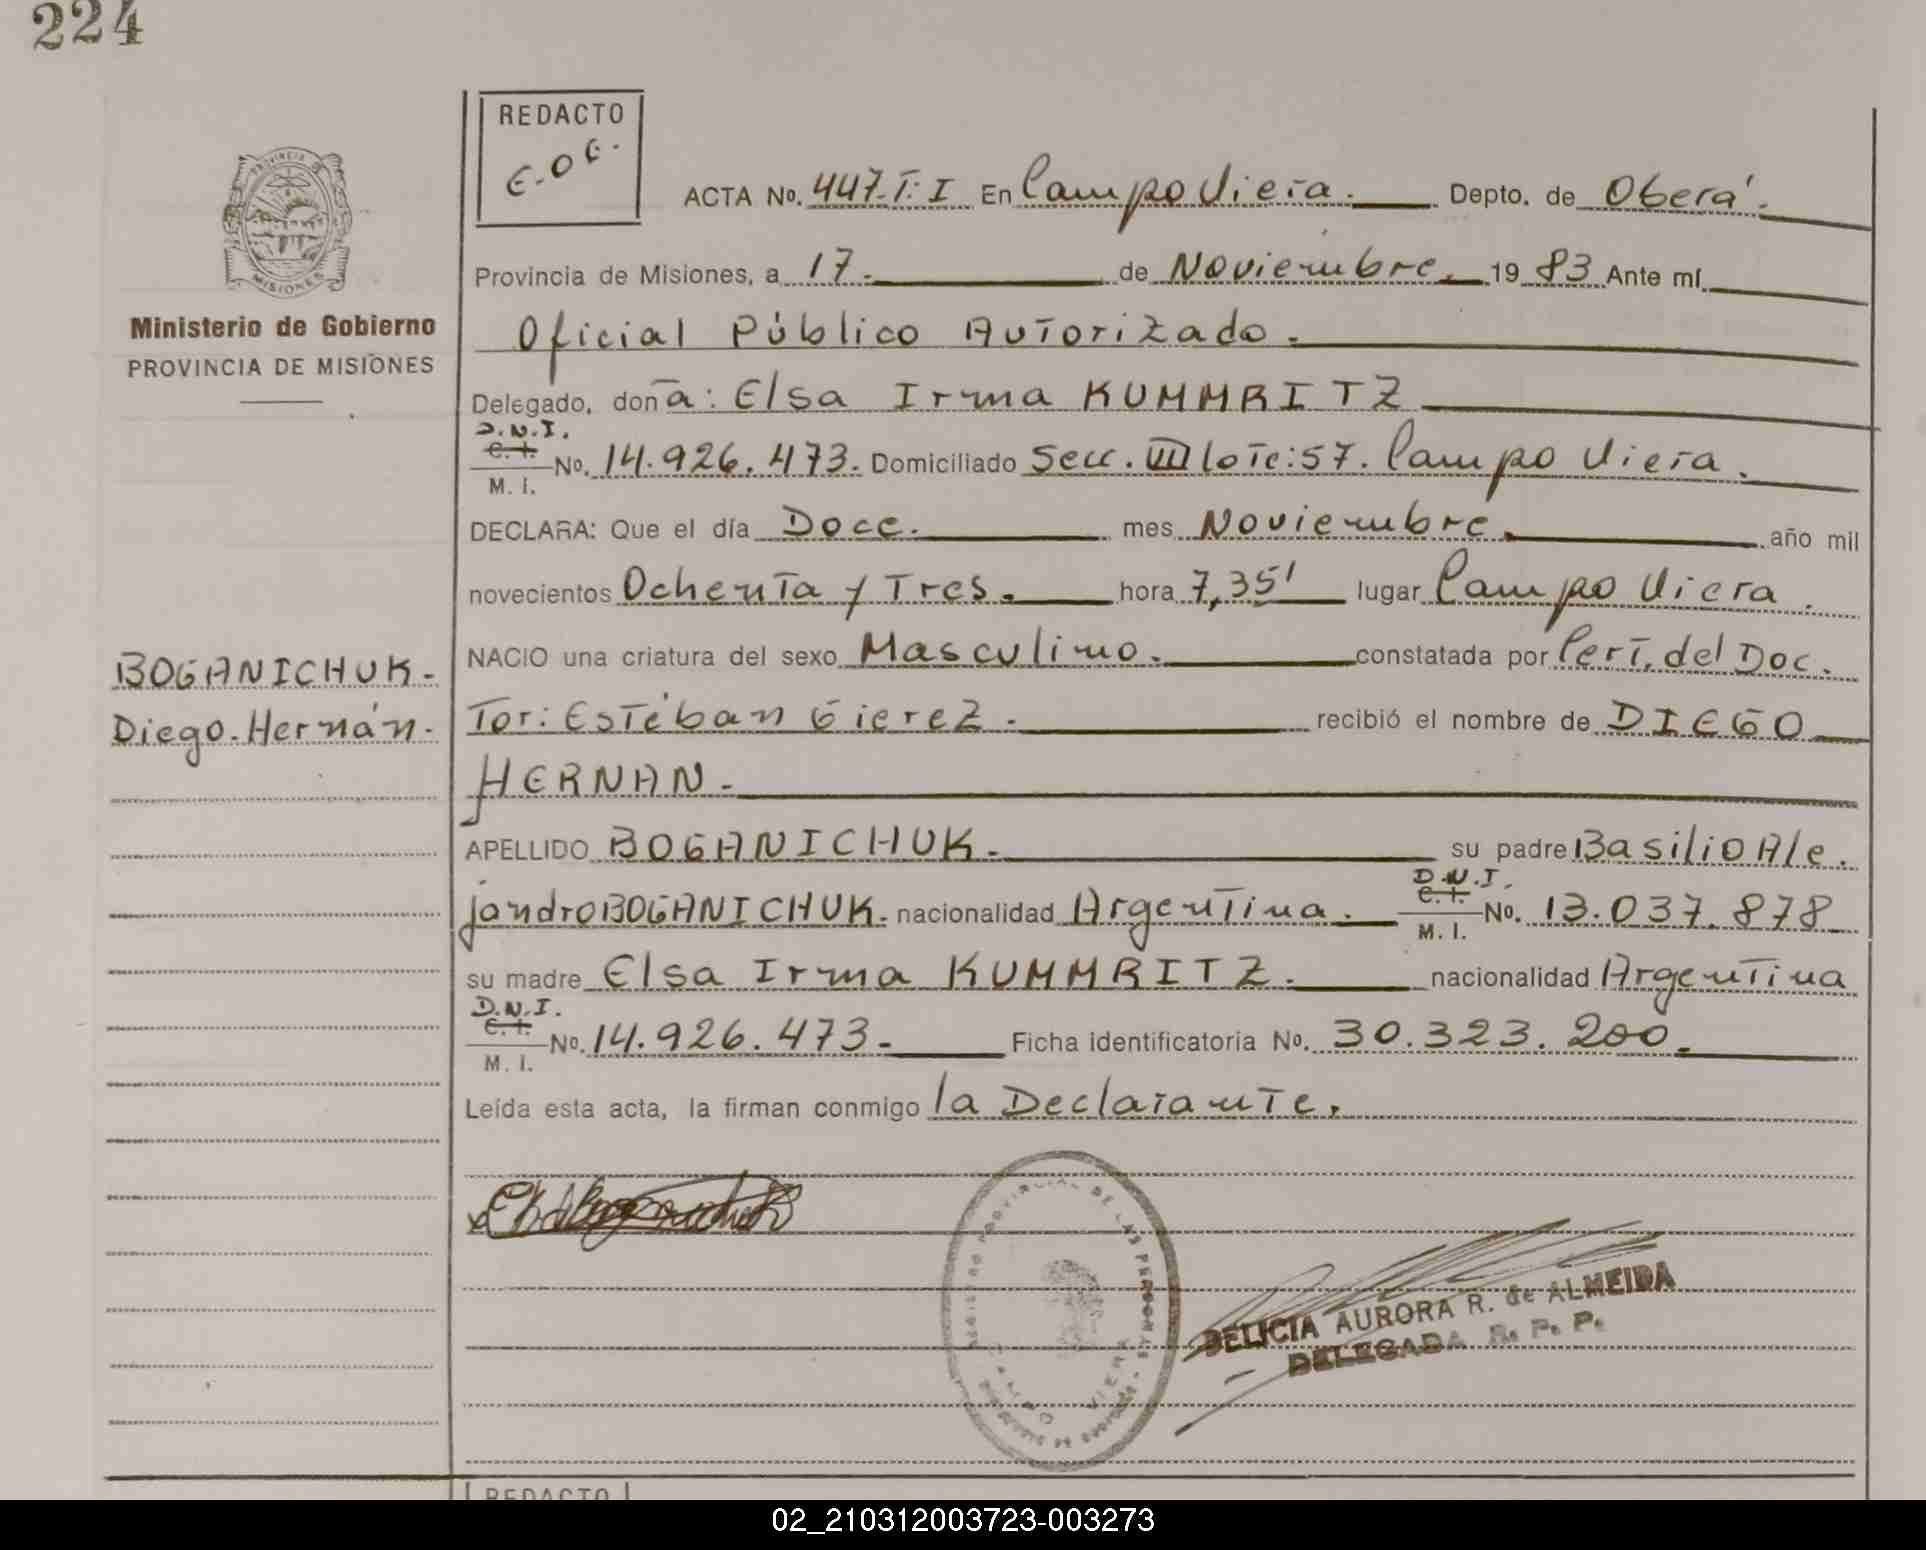 224
REDACTO
E.O.E.
ACTA No. 447-T: I En Campo Viera. Depto. de Oberá.
Provincia de Misiones, a 17. de Noviembre. 19 83 Ante mí
Oficial Público Autorizado.
Delegado, doña: Elsa Irma KUMMRITZ
D.N.I.
C. I. No. 14.926.473. Domiciliado Secc. III lote: 57. Campo Viera.
M. I.
DECLARA: Que el día Doce. mes Noviembre. año mil
novecientos Ochenta y Tres. hora 7,35' lugar Campo Viera.
NACIO una criatura del sexo Masculino. constatada por Cert. del Doc.
Tor: Estéban Gierez. recibió el nombre de DIEGO
HERNAN.
APELLIDO BOGANICHUK. su padre Basilio Ale.
jandro BOGANICHUK. nacionalidad Argentina. D.N.I. C. I. No. 13.037.878
M. I.
su madre Elsa Irma KUMMRITZ. nacionalidad Argentina
D.N.I.
C. I. No. 14.926.473. Ficha identificatoria No. 30.323.200.
M. I.
Leída esta acta, la firman conmigo la Declarante.
PROVINCIA DE
MISIONES
Ministerio de Gobierno
PROVINCIA DE MISIONES
BOGANICHUK.
Diego. Hernán.
REGISTRO PROVINCIAL DE LAS PERSONAS
CAMPO VIERA
DELICIA AURORA R. de ALMEIDA
DELEGADA R. P. P.
REDACTO
02_210312003723-003273